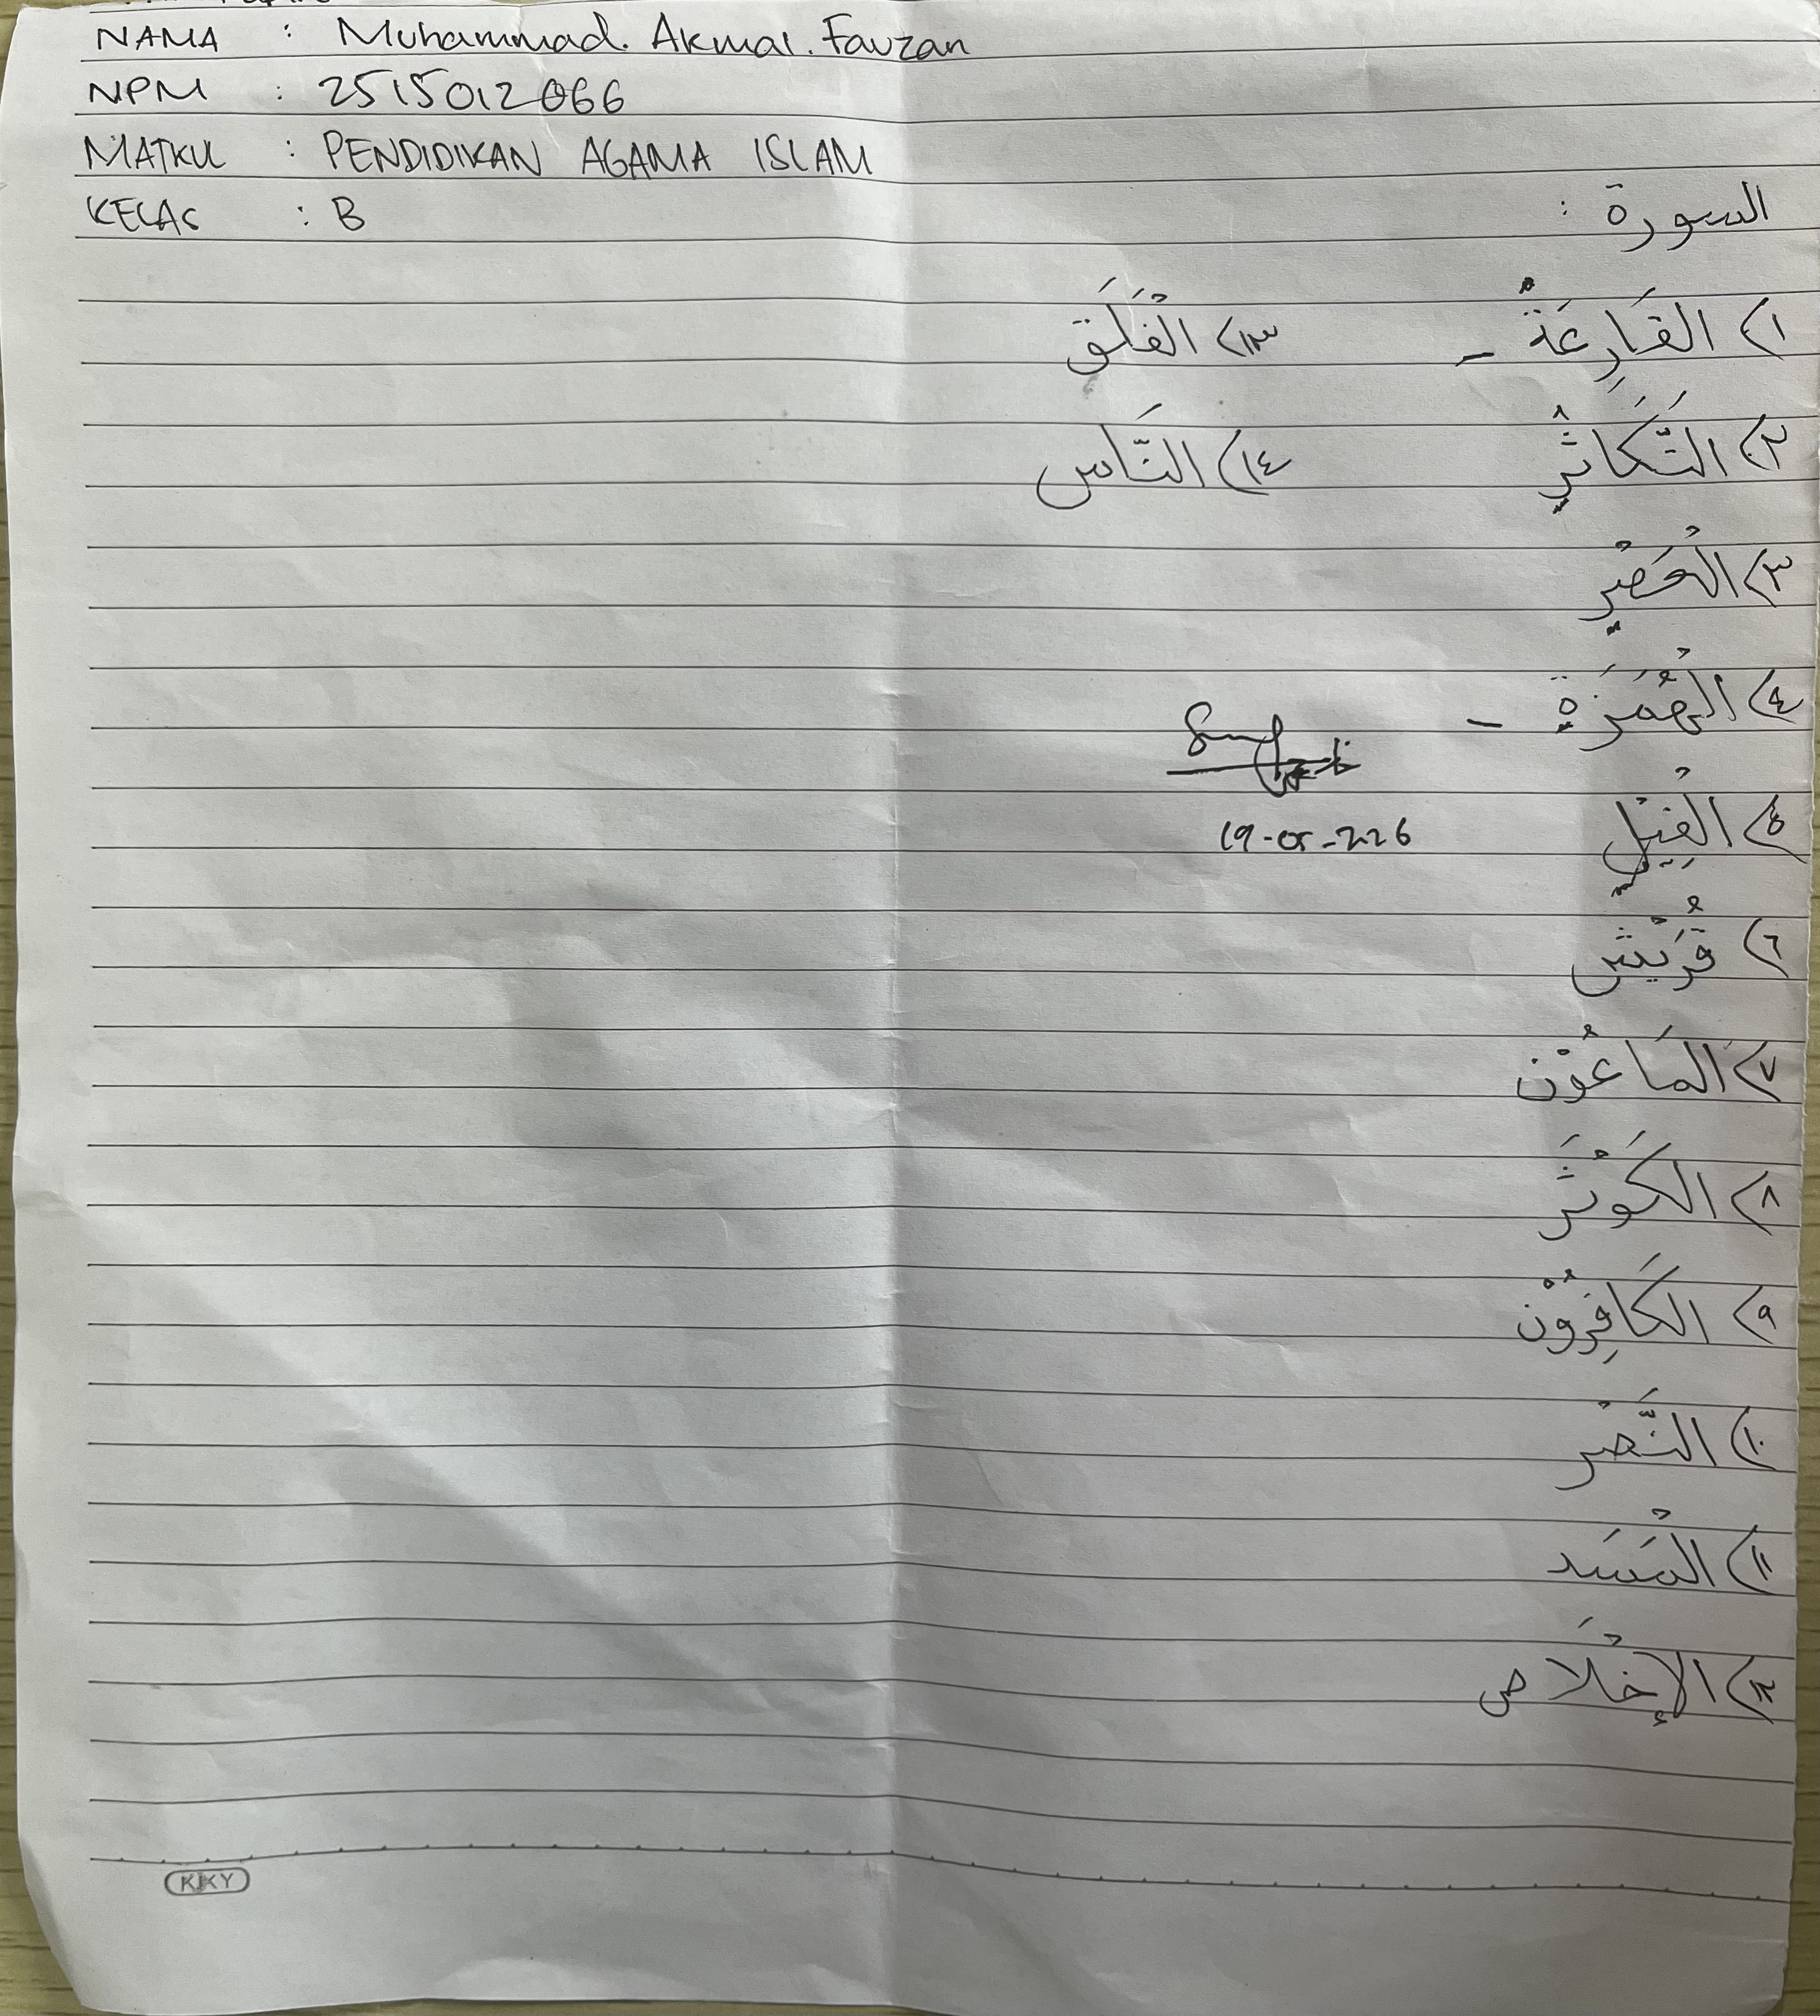 NAMA : Muhammad. Akmal. Fauzan
NPM : 2515012066
MATKUL : PENDIDIKAN AGAMA ISLAM
KELAS : B
السورة :
١) القَارِعَةُ -
٢) التَّكَاثُرِ
٣) الْعَصْرِ
٤) الْهُمَزَةِ -
٥) الْفِيْلِ
٦) قُرَيْش
٧) المَاعُوْن
٨) الكَوْثَرَ
٩) الكَافِرُوْن
١٠) النَّصْر
١١) الْمَسَد
١٢) الإخْلَاص
١٣) الْفَلَق
١٤) النَّاس
19-05-2026
KKY